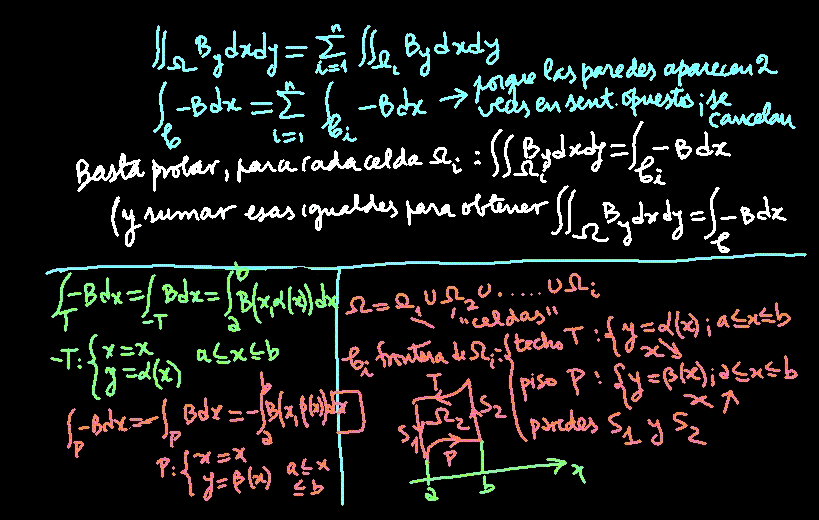 ∬_Ω B_y dxdy = Σ_{i=1}^{n} ∬_{Ω_i} B_y dxdy
∫_𝒞 -Bdx = Σ_{i=1}^{n} ∫_{𝒞_i} -Bdx → porque las paredes aparecen 2
veces en sent. opuestos; se
cancelan
Basta probar, para cada celda Ω_i : ∬_{Ω_i} B_y dxdy = ∫_{𝒞_i} -Bdx
(y sumar esas igualdes para obtener ∬_Ω B_y dxdy = ∫_𝒞 -Bdx
∫_T -Bdx = ∫_{-T} Bdx = ∫_a^b B(x,α(x))dx
-T: { x=x
y=α(x) a≤x≤b
∫_P -Bdx = -∫_P Bdx = -∫_a^b B(x,β(x))dx
P: { x=x
y=β(x) a≤x
≤b
Ω = Ω_1 ∪ Ω_2 ∪ ..... ∪ Ω_i
"celdas"
𝒞_i frontera de Ω_i: { techo T : { y=α(x); a≤x≤b
x
piso P : { y=β(x); a≤x≤b
x
paredes S_1 y S_2
T
S_1 Ω_2 S_2
P
a b x